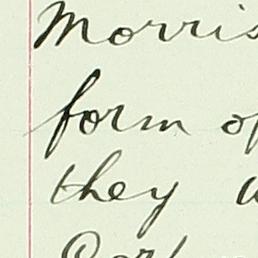 Morris
form of
they